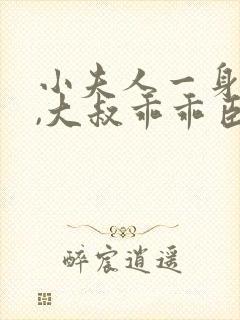 小夫人一身
,大叔乖乖臣
醉宸逍遥